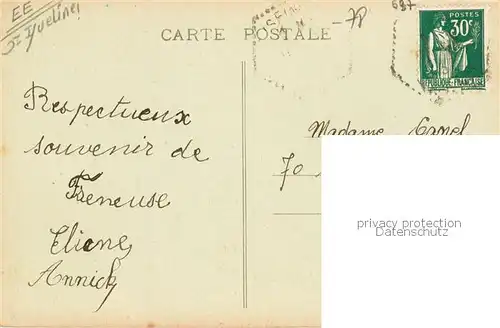 EE
Yvelines
CARTE POSTALE
-78
697
POSTES
30c
RÉPUBLIQUE-FRANÇAISE
Respectueux
souvenir de
Freneuse
Eliane
Annick
Madame
70
privacy protection
Datenschutz